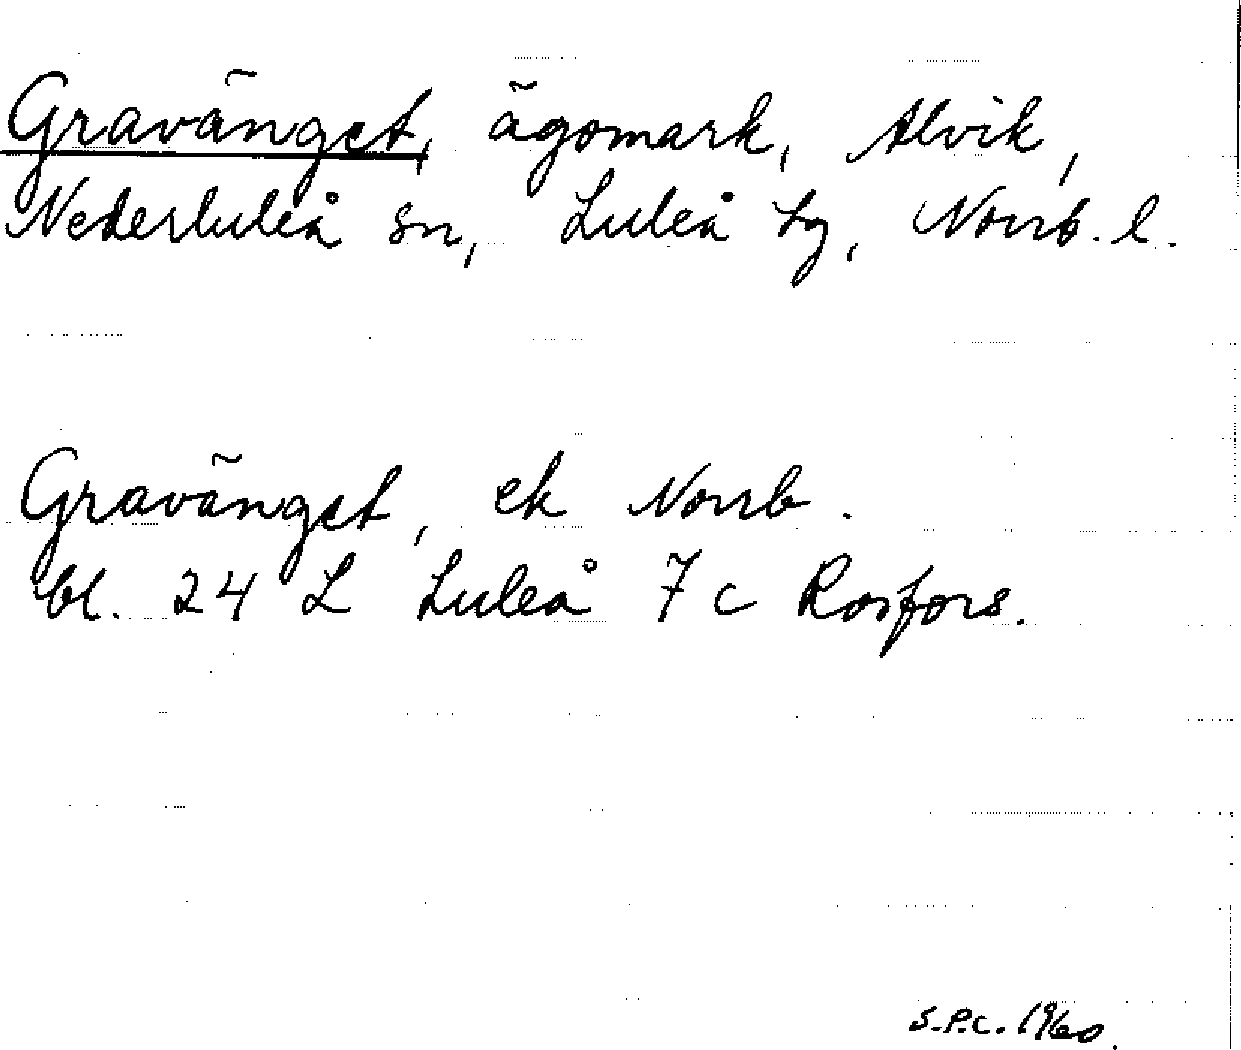 Gravänget, ägomark, Alvik,
Nederluleå sn, Luleå tg, Norrb. l.
Gravänget, ek Norrb.
bl. 24 L Luleå 7 c Rosfors.
S.P.C. 1960.